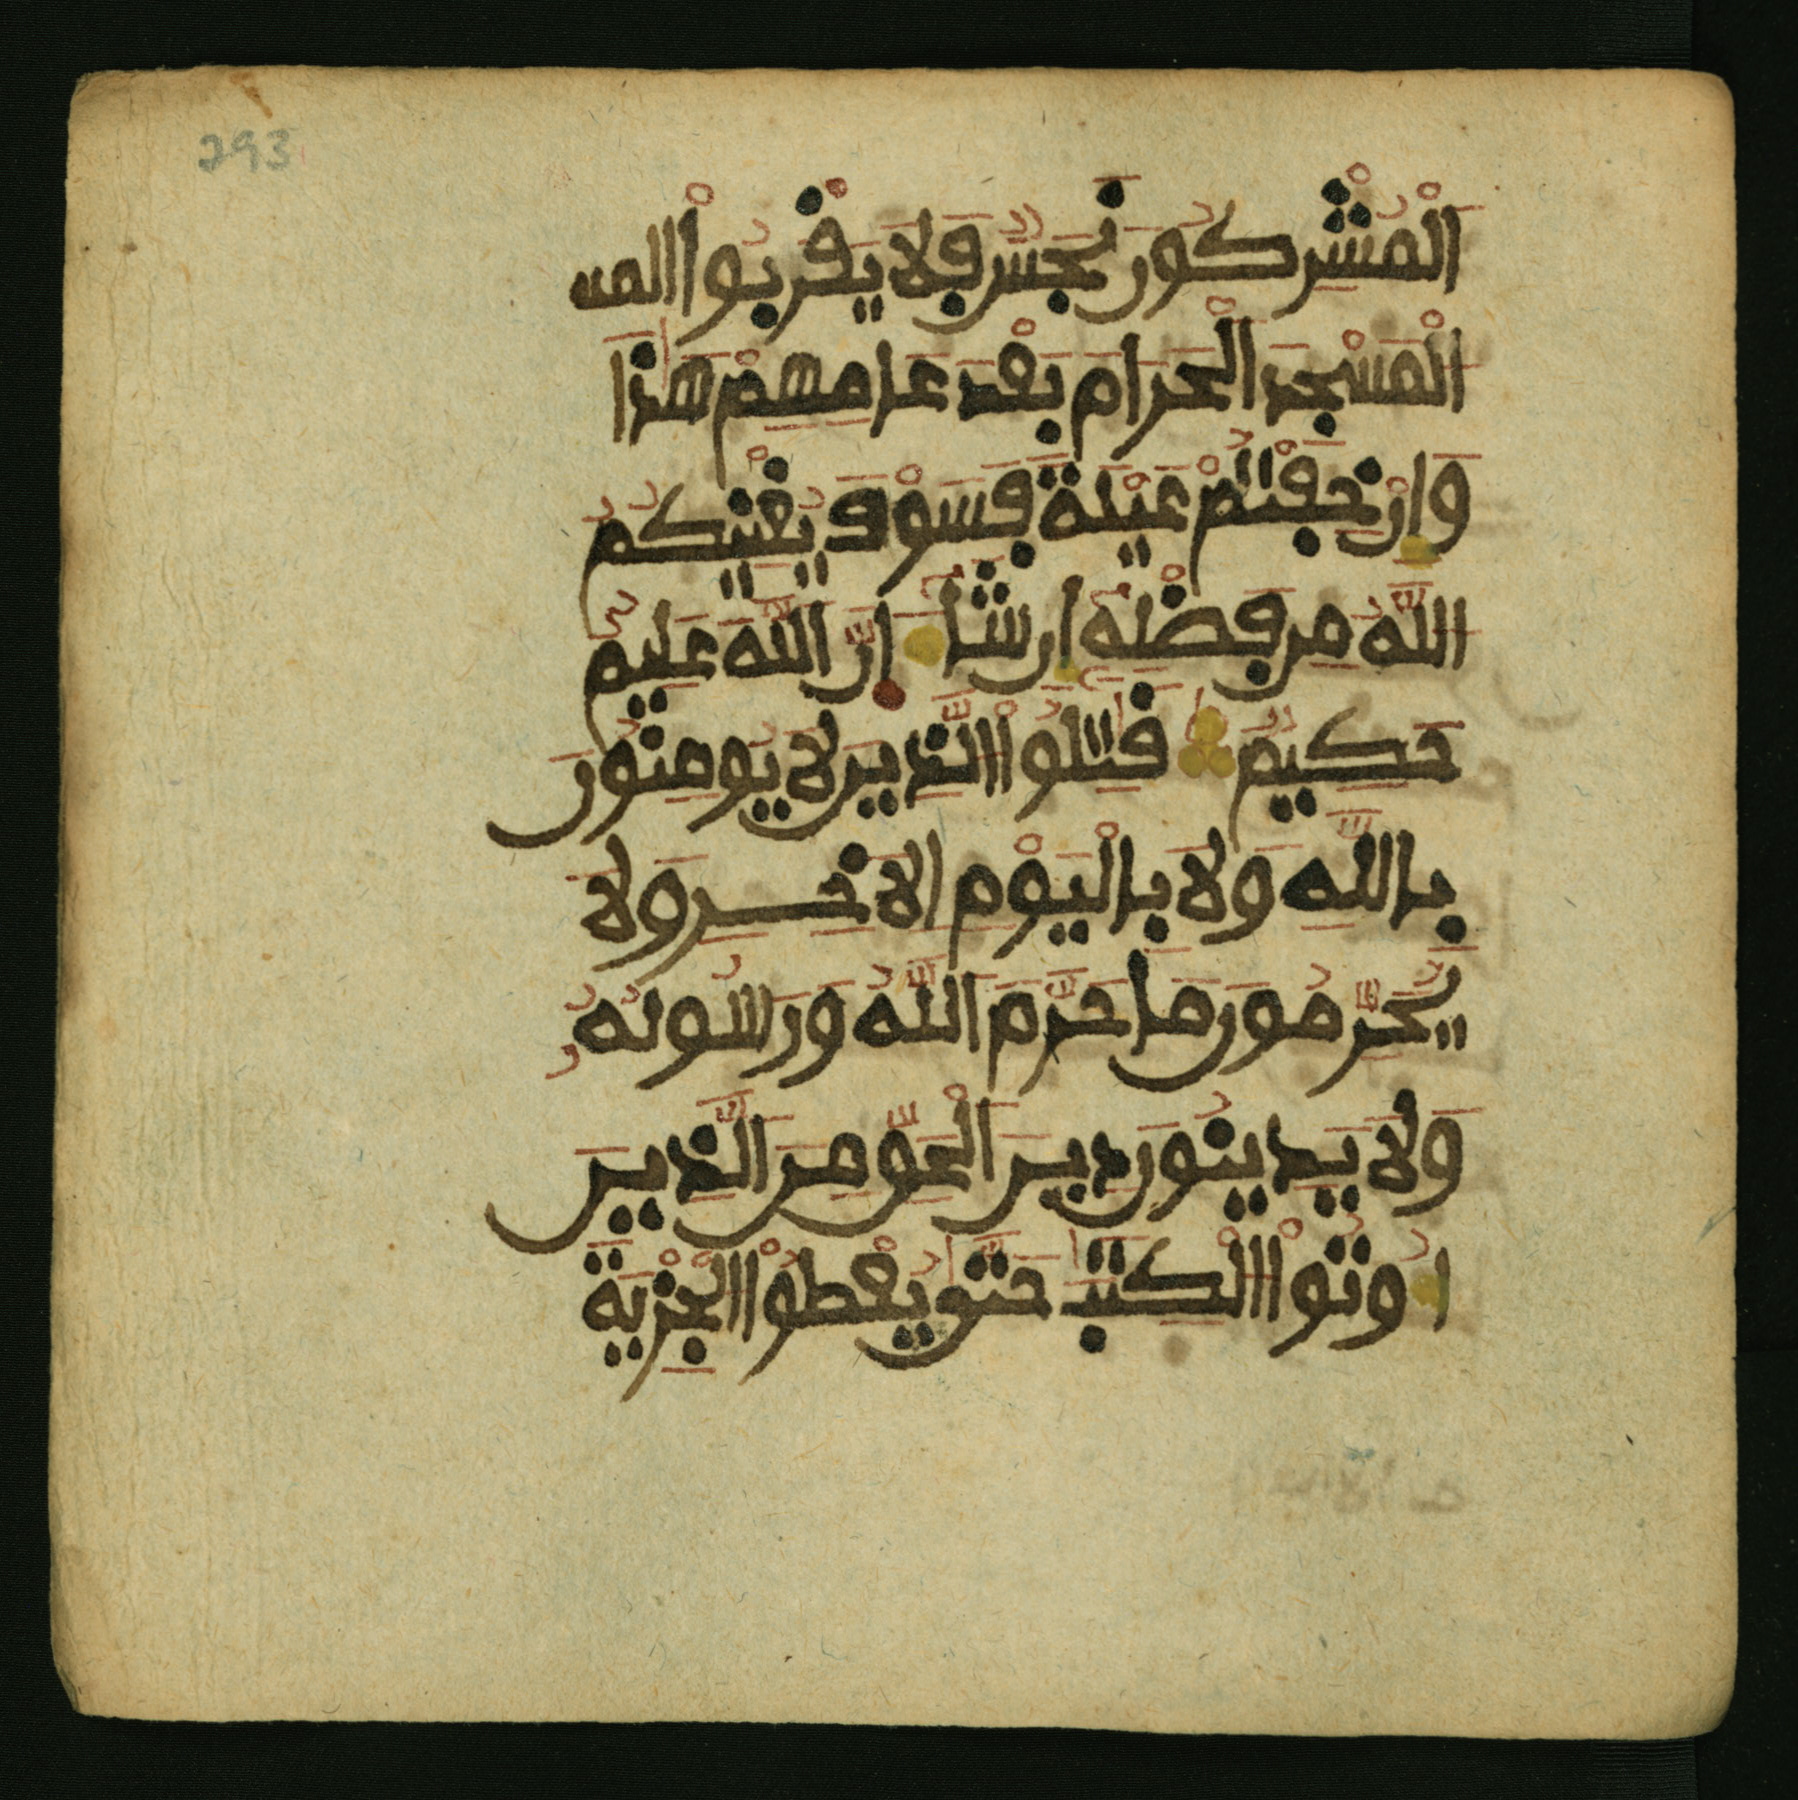 293
الْمُشْرِكُونَ نَجَسٌ فَلَا يَقْرَبُواْ المس
الْمَسْجِدَ الْحَرَامَ بَعْدَ عَامِهِمْ هَٰذَا
وَإِنْ خِفْتُمْ عَيْلَةً فَسَوْفَ يُغْنِيكُمُ
اللَّهُ مِن فَضْلِهِ إِن شَآ إِنَّ اللَّهَ عَلِيمٌ
حَكِيمٌ قَٰتِلُواْ الَّذِينَ لَا يُومِنُونَ
بِاللَّهِ وَلَا بِالْيَوْمِ الَاخِرِ وَلَا
يُحَرِّمُونَ مَا حَرَّمَ اللَّهُ وَرَسُولُهُ
وَلَا يَدِينُونَ دِينَ الْحَقِّ مِنَ الَّذِينَ
أُوتُواْ الْكِتَٰبَ حَتَّىٰ يُعْطُواْ الْجِزْيَةَ